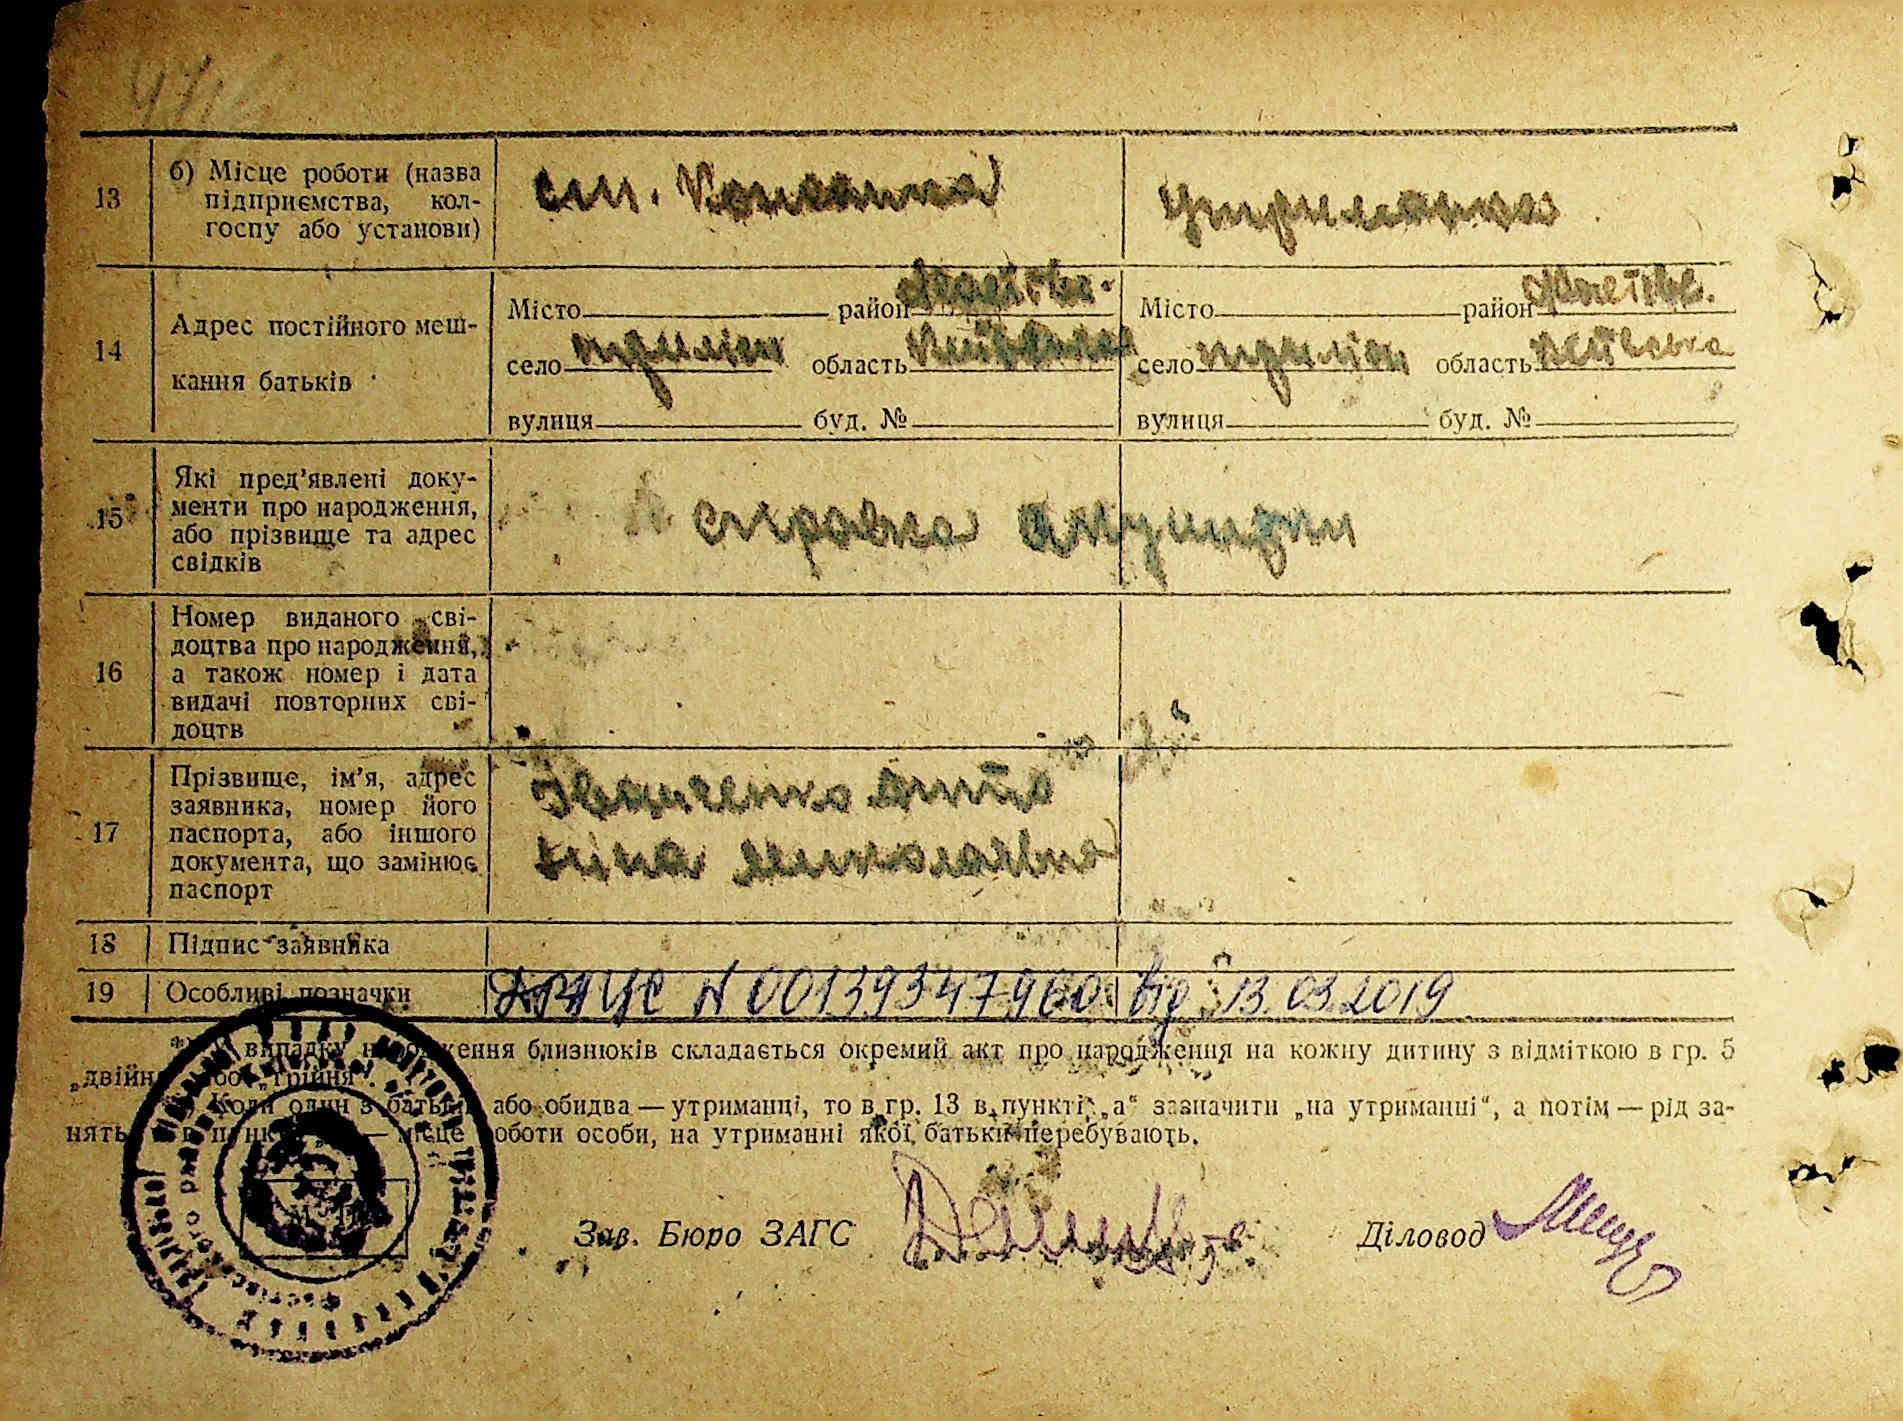 13
б) Місце роботи (назва
підприємства, кол-
госпу або установи)
ст.
утриманка
14
Адрес постійного меш-
кання батьків
Місто район
село область
вулиця буд. №
Місто район
село область Київська
вулиця буд. №
15
Які пред'явлені доку-
менти про народження,
або прізвище та адрес
свідків
справка
16
Номер виданого сві-
доцтва про народження,
а також номер і дата
видачі повторних сві-
доцтв
17
Прізвище, ім'я, адрес
заявника, номер його
паспорта, або іншого
документа, що замінює
паспорт
Миколаївна
18 Підпис заявника
19 Особливі позначки
ДРАЦС N 00139347960 від 13.03.2019
*) В випадку народження близнюків складається окремий акт про народження на кожну дитину з відміткою в гр. 5
„двійня" або „трійня".
Коли один з батьків або обидва — утриманці, то в гр. 13 в пункті „а" зазначити „на утриманні", а потім — рід за-
нять, в пункті — місце роботи особи, на утриманні якої батьки перебувають.
Зав. Бюро ЗАГС
Діловод